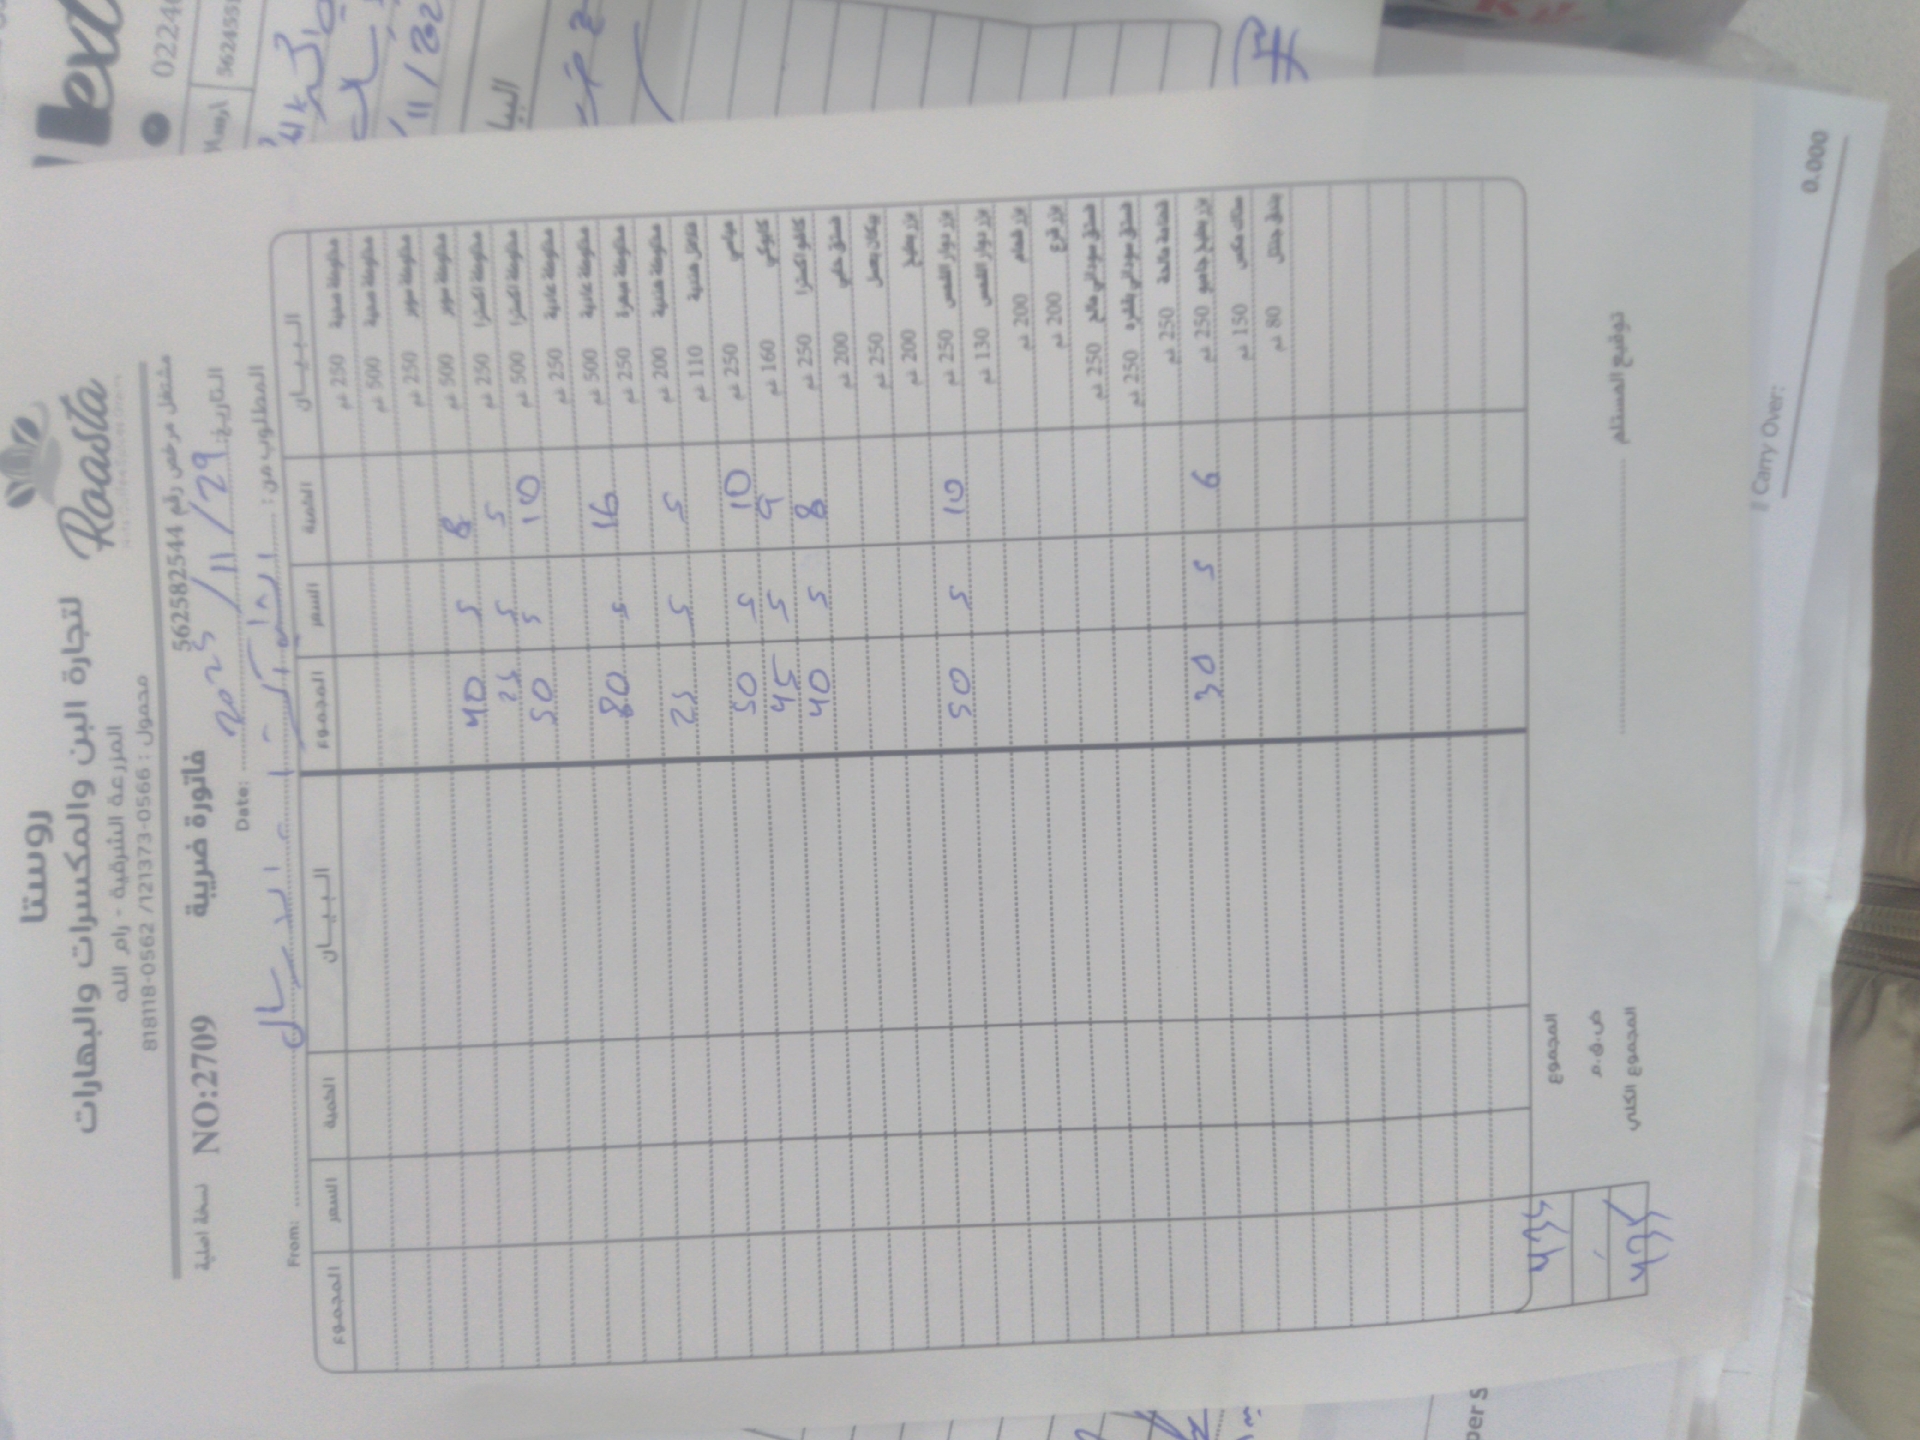 روستا
لتجارة البن والمكسرات والبهارات
المزرعة الشرقية - رام الله
محمول : 0566-121373/ 0562-818118
Roasta
مشتغل مرخص رقم 562582544
نسخة اصلية NO:2709 فاتورة ضريبية
Date: 2025/11/29 التاريخ:
From: المطلوب من:
البيـــان الكمية السعر المجموع البيـــان الكمية السعر المجموع
250 غم مخلوطة صحية
500 غم مخلوطة صحية
250 غم مخلوطة سوبر
500 غم مخلوطة سوبر 8 5 40
250 غم مخلوطة اكسترا 5 5 25
500 غم مخلوطة اكسترا 10 5 50
250 غم مخلوطة عادية
500 غم مخلوطة عادية 16 5 80
250 غم مخلوطة مبهرة
200 غم مخلوطة هندية 5 5 25
110 غم هندية
250 غم 10 5 50
160 غم 9 5 45
250 غم كاشو اكسترا 8 5 40
200 غم فستق حلبي
250 غم بيكان بعسل
200 غم بزر بطيخ
250 غم بزر دوار الشمس 10 5 50
130 غم بزر دوار الشمس
200 غم بزر شمام
200 غم بزر قرع
250 غم فستق سوداني مالح
250 غم فستق سوداني بقشره
250 غم قضامة مالحة
250 غم بزر بطيخ جامبو 6 5 30
150 غم سناك مكس
80 غم
المجموع 435
ض.ق.م
المجموع الكلي 435
توقيع المستلم
Carry Over:
0.000